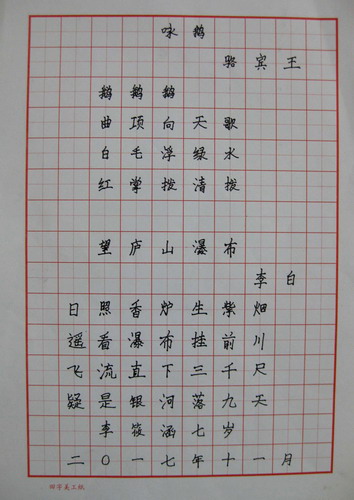 咏鹅
骆宾王
鹅鹅鹅
曲项向天歌
白毛浮绿水
红掌拨清拨
望庐山瀑布
李白
日照香炉生紫烟
遥看瀑布挂前川
飞流直下三千尺
疑是银河落九天
李筱涵七岁
二〇一七年十一月
田字美工纸